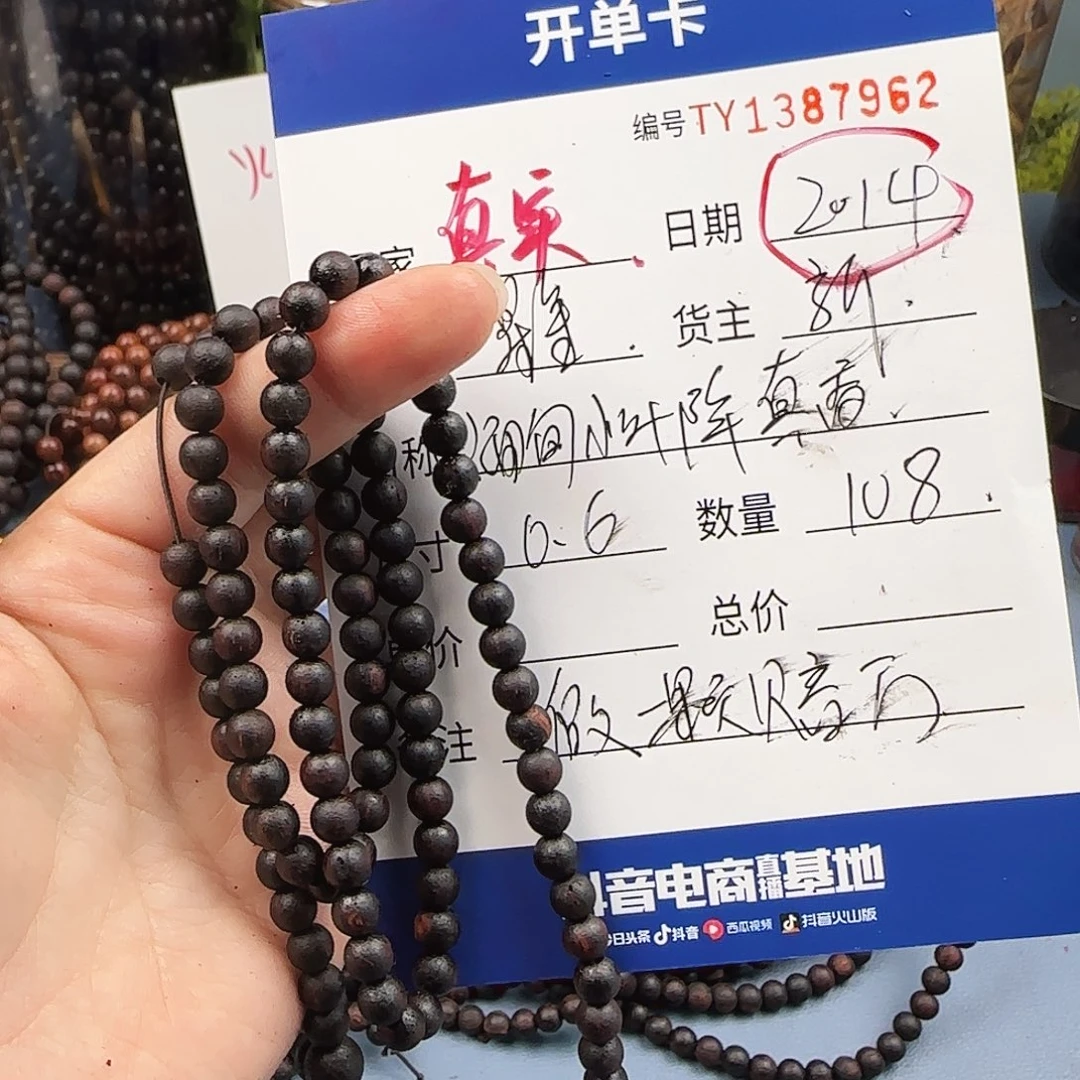 开单卡
编号 TY1387962
火
家 真实 日期 2014
货主
称 缅甸小叶降真香
寸 0.6 数量 108
价 总价
注 假一赔万
抖音电商直播基地
今日头条 抖音 西瓜视频 抖音火山版